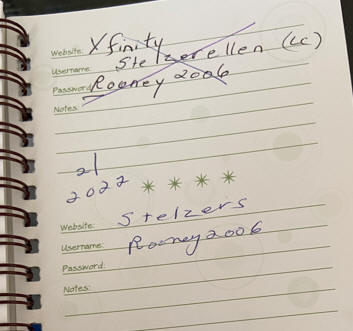 Website: Xfinity
Username: Stelzerellen (LC)
Password: Rooney 2006
Notes:
21
2022 ****
Website: Stelzers
Username: Rooney2006
Password:
Notes: